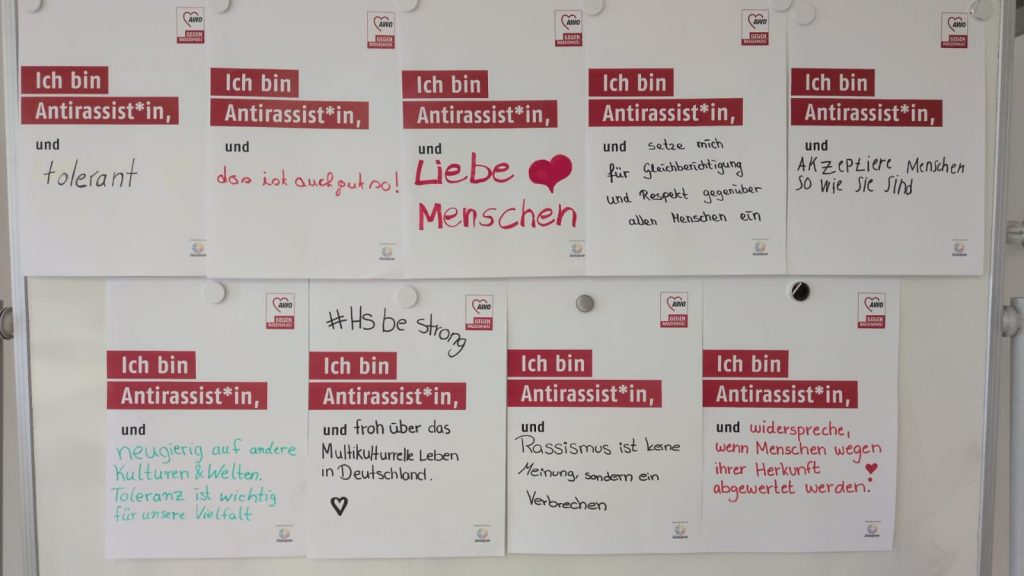 AWO
GEGEN
RASSISMUS!
Ich bin
Antirassist*in,
und
tolerant
AWO
GEGEN
RASSISMUS!
Ich bin
Antirassist*in,
und
das ist auch gut so!
AWO
GEGEN
RASSISMUS!
Ich bin
Antirassist*in,
und
Liebe
Menschen
AWO
GEGEN
RASSISMUS!
Ich bin
Antirassist*in,
und setze mich
für Gleichberichtigung
und Respekt gegenüber
allen Menschen ein
AWO
GEGEN
RASSISMUS!
Ich bin
Antirassist*in,
und
AKZEPTiere Menschen
SO wie Sie Sind
AWO
GEGEN
RASSISMUS!
Ich bin
Antirassist*in,
und
neugierig auf andere
Kulturen & Welten.
Toleranz ist wichtig
für unsere Vielfalt
#Hs be strong
AWO
GEGEN
RASSISMUS!
Ich bin
Antirassist*in,
und froh über das
Multikulturrelle Leben
in Deutschland.
AWO
GEGEN
RASSISMUS!
Ich bin
Antirassist*in,
und
Rassismus ist keine
Meinung, sondern ein
Verbrechen
AWO
GEGEN
RASSISMUS!
Ich bin
Antirassist*in,
und widerspreche,
wenn Menschen wegen
ihrer Herkunft
abgewertet werden!